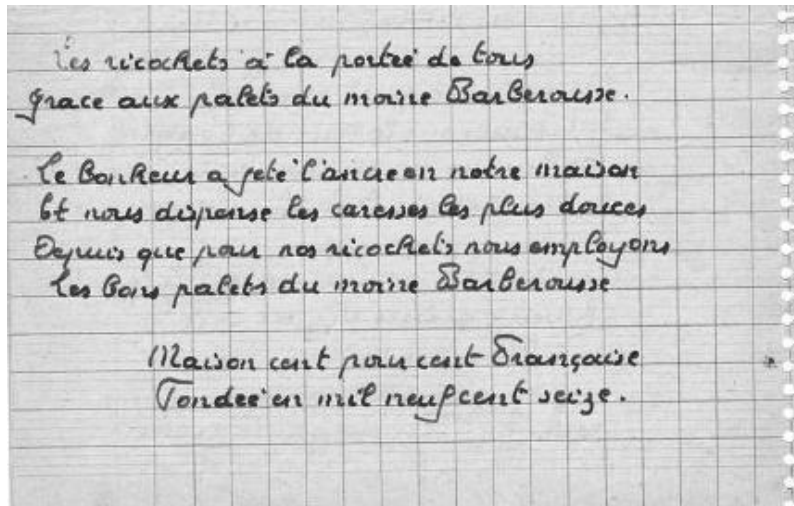 Les ricochets à la portée de tous
grace aux palets du moine Barberousse.
Le Bonheur a jeté l'ancre en notre maison
Et nous dispense les caresses les plus douces
Depuis que pour nos ricochets nous employons
Les bons palets du moine Barberousse
Maison cent pour cent Française
Fondée en mil neuf cent seize.